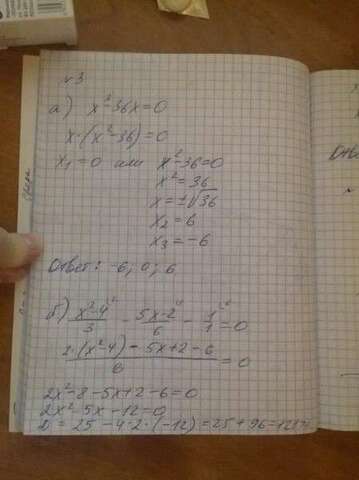 №3
а) x²-36x=0
x·(x²-36)=0
x₁=0 или x²-36=0
x²=36
x=±√36
x₂=6
x₃=-6
Ответ: -6; 0; 6
б) (x²-4)/3 - (5x-2)/6 - 1/1 =0
(2·(x²-4)-5x+2-6)/6 =0
2x²-8-5x+2-6=0
2x²-5x-12=0
D=25-4·2·(-12)=25+96=121